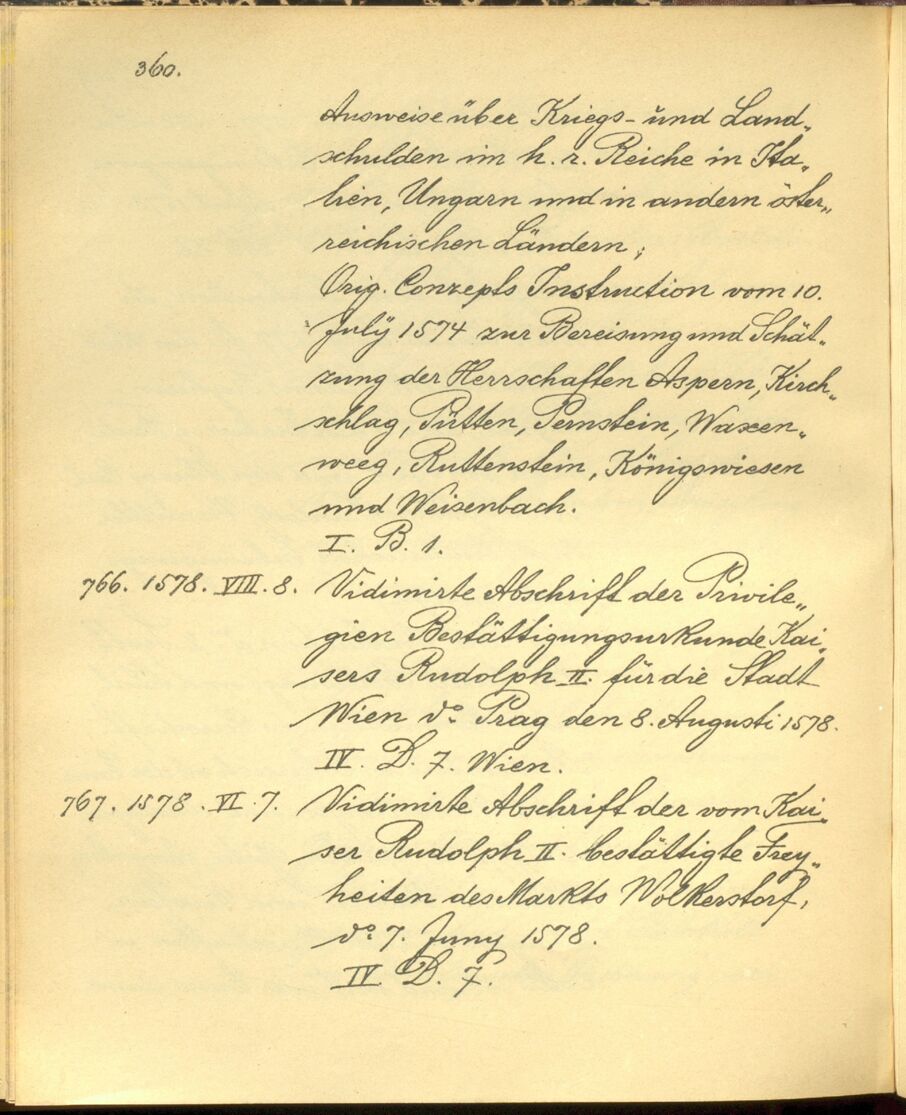 360.
Ausweise über Kriegs- und Land„
schulden im h. r. Reiche in Ita„
lien, Ungarn und in andern öster„
reichischen Ländern;
Orig. Conzepts Instruction vom 10.
Julÿ 1574 zur Bereisung und Schät„
zung der Herrschaften Aspern, Kirch„
schlag, Pütten, Pernstein, Waxen„
weeg, Ruttenstein, Königswiesen
und Weisenbach.
I. B. 1.
766. 1578. VIII. 8. Vidimirte Abschrift der Privile„
gien Bestättigungsurkunde Kai„
sers Rudolph II. für die Stadt
Wien do. Prag den 8. Augusti 1578.
IV. D. 7. Wien.
767. 1578. VI. 7. Vidimirte Abschrift der vom Kai„
ser Rudolph II. bestättigte Frey„
heiten des Markts Wolkerstorf,
do. 7. Juny 1578.
IV D. 7.